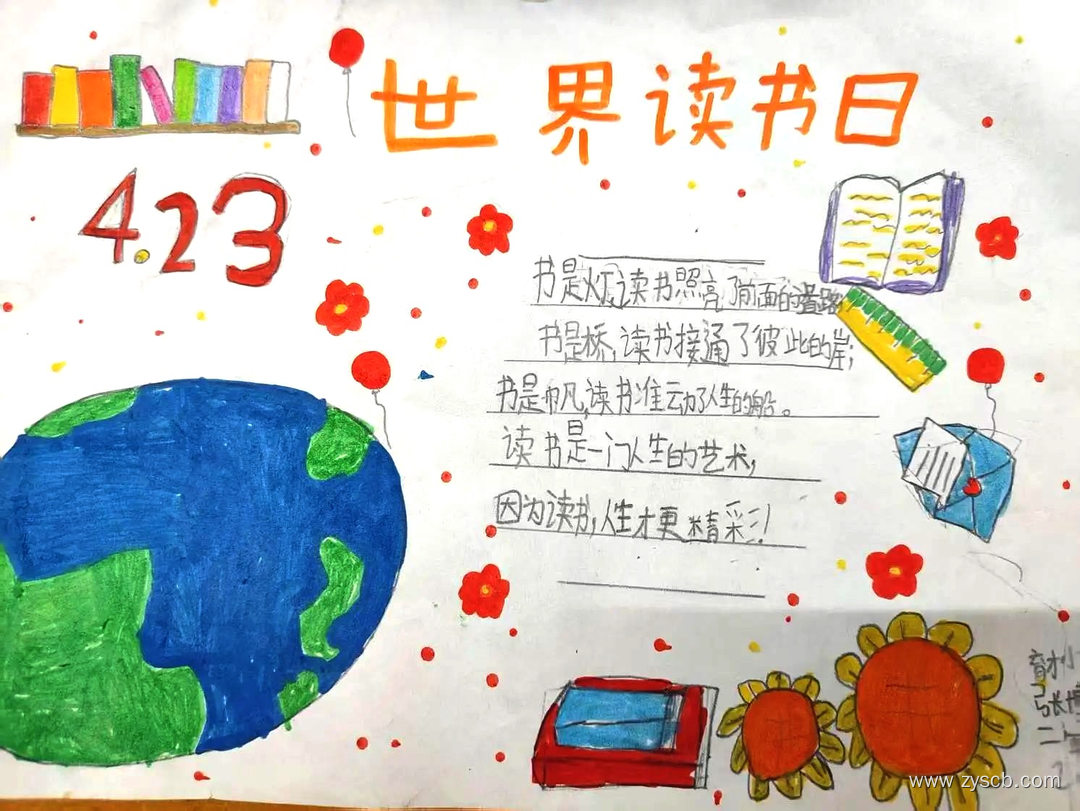 世界读书日
4.23
书是灯,读书照亮了前面的道路
书是桥,读书接通了彼此的岸;
书是帆,读书准云力了人生的船。
读书是一门人生的艺术,
因为读书,人生才更精彩!
育才小
张博
www.zyscb.com